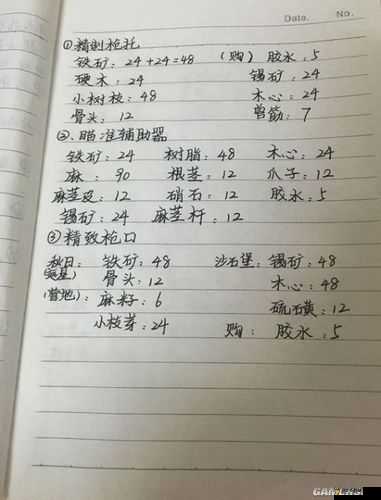 Data. No.
①精制枪托
铁矿：24+24=48 （购）胶水：5
硬木：24 锡矿：24
小树枝：48 木心：24
骨头：12 兽筋：7
②瞄准辅助器
铁矿：24 树脂：48 木心：24
麻：90 根茎：12 爪子：12
麻茎皮：12 硝石：12 胶水：5
锡矿：24 麻茎杆：12
③精致枪口
秋日： 铁矿：48 沙石堡：锡矿：48
骨头：12 木心：48
(营地)：麻籽：6 硫磺：12
小枝芽：24 购：胶水：5